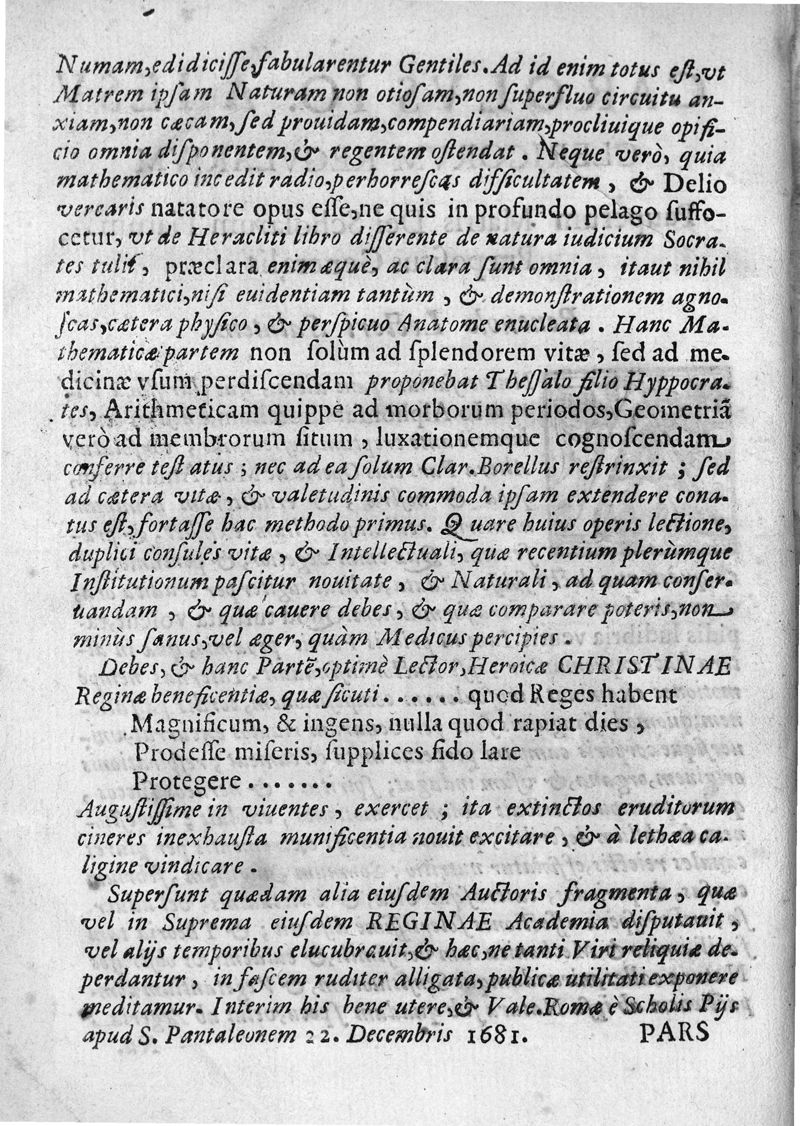 Numam, edidiciſſe, fabularentur Gentiles. Ad id enim totus eſt, vt
Matrem ipſam Naturam non otioſam, non ſuperfluo circuitu an-
xiam, non cæcam, ſed prouidam, compendiariam, procliuique opifi-
cio omnia diſponentem, & regentem oſtendat. Neque verò, quia
mathematico incedit radio, perhorreſcas difficultatem, & Delio
verearis natatore opus eſſe, ne quis in profundo pelago ſuffo-
cetur, vt de Heracliti libro differente de natura iudicium Socra-
tes tulit, præclara enim æquè, ac clara ſunt omnia, itaut nihil
mathematici, niſi euidentiam tantùm, & demonſtrationem agno-
ſcas, cætera phyſico, & perſpicuo Anatome enucleata. Hanc Ma-
thematicæ partem non ſolùm ad ſplendorem vitæ, ſed ad me-
dicinæ vſum perdiſcendam proponebat Theſſalo filio Hyppocra-
tes, Arithmeticam quippe ad morborum periodos, Geometriã
verò ad membrorum ſitum, luxationemque cognoſcendam
conferre teſtatus; nec ad ea ſolum Clar. Borellus reſtrinxit; ſed
ad cætera vitæ, & valetudinis commoda ipſam extendere cona-
tus eſt, fortaſſe hac methodo primus. Quare huius operis lectione,
duplici conſules vitæ, & Intellectuali, quæ recentium plerùmque
Inſtitutionum paſcitur nouitate, & Naturali, ad quam conſer-
uandam, & quæ cauere debes, & quæ comparare poteris, non
minùs ſanus, vel æger, quàm Medicus percipies.
Debes, & hanc Partẽ, optimè Lector, Heroicæ CHRISTINAE
Reginæ beneficentiæ, quæ ſicuti...... quod Reges habent
Magnificum, & ingens, nulla quod rapiat dies,
Prodeſſe miſeris, ſupplices fido lare
Protegere.......
Auguſtiſſime in viuentes, exercet; ita extinctos eruditorum
cineres inexhauſta munificentia nouit excitare, & à lethæa ca-
ligine vindicare.
Superſunt quædam alia eiuſdem Auctoris fragmenta, quæ
vel in Suprema eiuſdem REGINAE Academia diſputauit,
vel alijs temporibus elucubrauit, & hæc, ne tanti Viri reliquiæ de-
perdantur, in faſcem ruditer alligata, publicæ utilitati exponere
meditamur. Interim his bene utere, & Vale. Romæ è Scholis Pijs
apud S. Pantaleonem 22. Decembris 1681. PARS